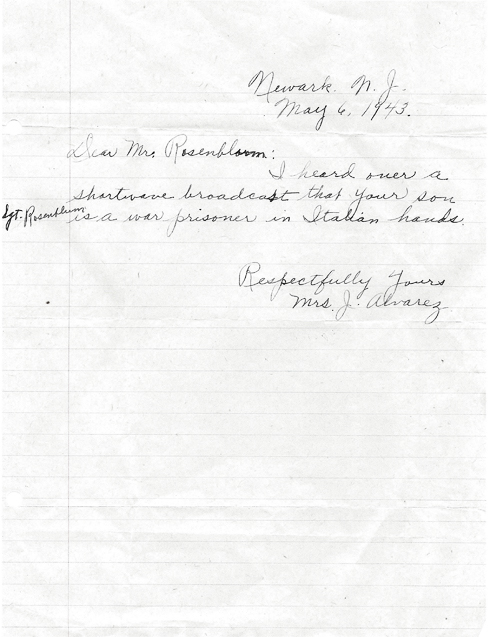 Newark. N. J.
May 6, 1943.
Dear Mr. Rosenbloom:
I heard over a
shortwave broadcast that your son
Sgt. Rosenblum
is a war prisoner in Italian hands.
Respectfully Yours
Mrs. J. Alvarez